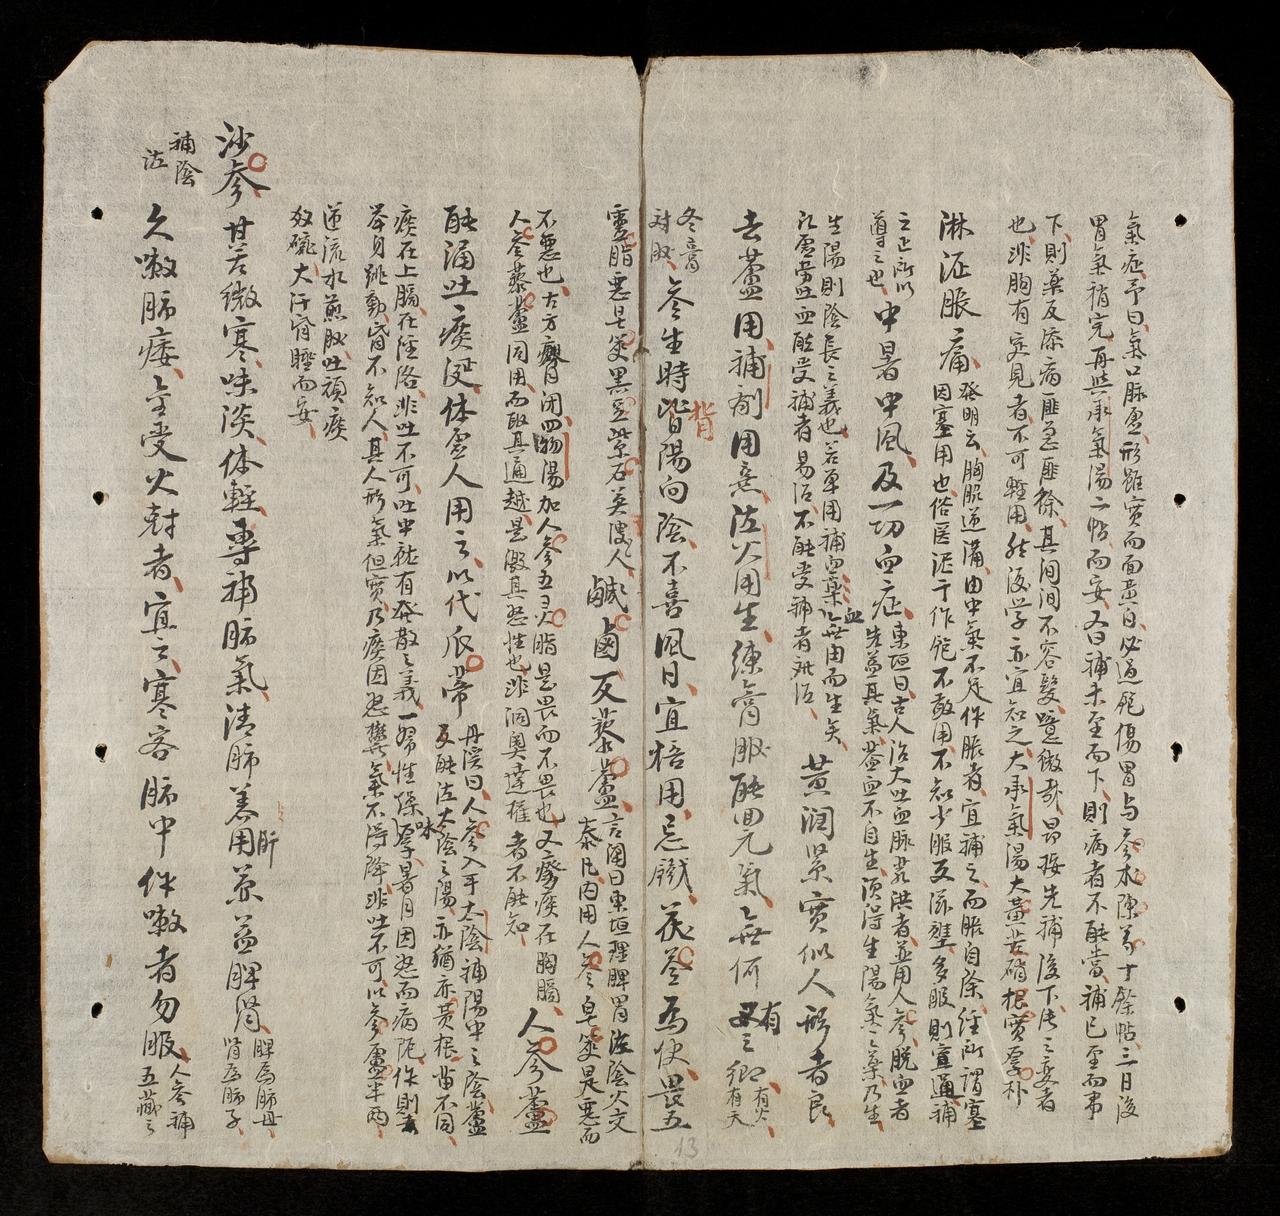 氣症予曰氣口脉虛形雖實而面黃白必過飽傷胃与參朮陳芍十餘帖三日後
胃氣稍完再与承氣湯二帖而安又曰補未至而下則病者不能當補已至而弗
下則藥反添病匪急匪徐其間間不容髮噫微哉昂按先補後下法之变者
也非胸有定見者不可輕用然後学亦宜知之大承氣湯大黃芒硝根實厚朴
淋瀝脹痛
發明云胸脇逆滿由中氣不足作脹者宜補之而脹自除經所謂塞
因塞用也俗医泥于作飽不敢用不知少服反滋壅多服則宣通補
之正所以
導之也
中暑中風及一切血症
東垣曰古人治大吐血脉芤洪者並用人參脱血者
先益其氣葢血不自生須得生陽氣之藥乃生
生陽則陰長之義也若單用補血藥血無由而生矣
凡虛勞吐血能受補者易治不能受補者难治
黄润緊實似人形者良
去蘆用補剂用熟泻火用生練膏服能囬元氣無何有之卿
有火
有天
冬膏
对服
參生時背陽向陰不喜風日宜梧用忌鐵茯苓為使畏五
靈脂惡皂莢黑豆紫石英溲人
鹹鹵反藜蘆
言闻曰東垣理脾胃泻陰火交
泰凡内用人參皂莢是惡而
不惡也古方療月闭四物湯加人參五灵脂是畏而不畏也又療痰在胸膈
人參藜蘆同用而取其通越是激其怒性也非洞奥達權者不能知
人參蘆
能涌吐痰涎体虛人用之以代瓜蒂
丹溪曰人參入手太陰補陽中之陰蘆
反能泻太陰之陽亦猶麻黄根苗不同
痰在上膈在淫洛非吐不可吐中就有發散之義一婦性燥味厚暑月因怒而病呃作則
举身跳動昏不知人其人形氣但實乃痰因怒欝氣不得降非吐不可以參蘆半两
逆流水煎服吐頑痰
数碗大汗昏睡而安
沙參
補陰
泻
甘苦微寒味淡体輕專補肺氣清肺養肝用兼益脾腎
脾為肺母
腎為肺子
久嗽肺痿金受火尅者宜之寒客肺中作嗽者勿服
人參補
五藏之
13